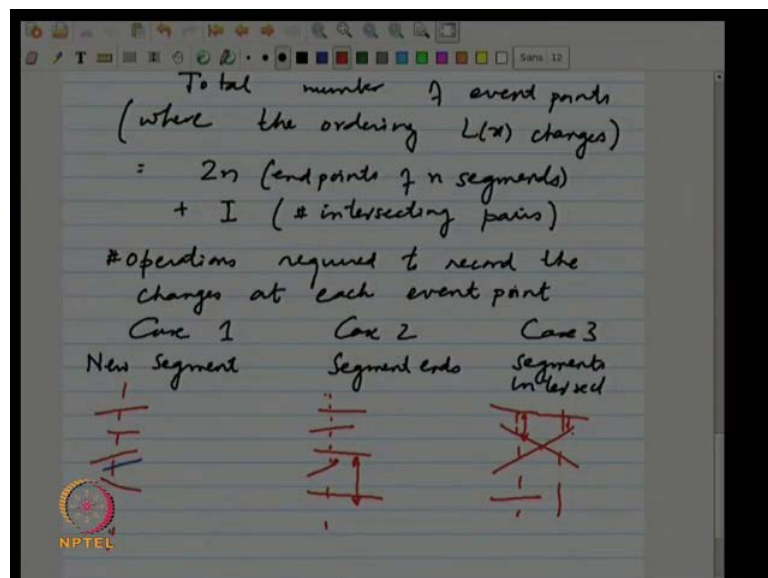 Sans 12
Total number of event points
(where the ordering L(x) changes)
= 2n (end points of n segments)
+ I (# intersecting pairs)
# operations required to record the
changes at each event point
Case 1 Case 2 Case 3
New Segment Segment ends Segments
Intersect
NPTEL